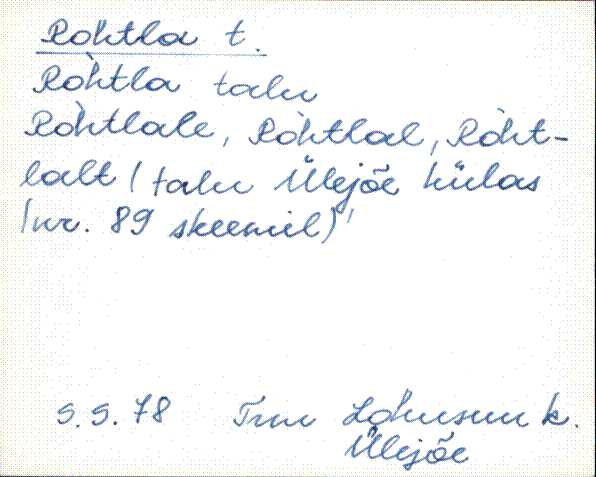 Rohtla t.
Ròhtla talu
Ròhtlale, Ròhtlal, Ròht-
lalt (talu Ülejõe külas
(nr. 89 skeemil)
5.5.78 Trm Lohusuu k.
Ülejõe